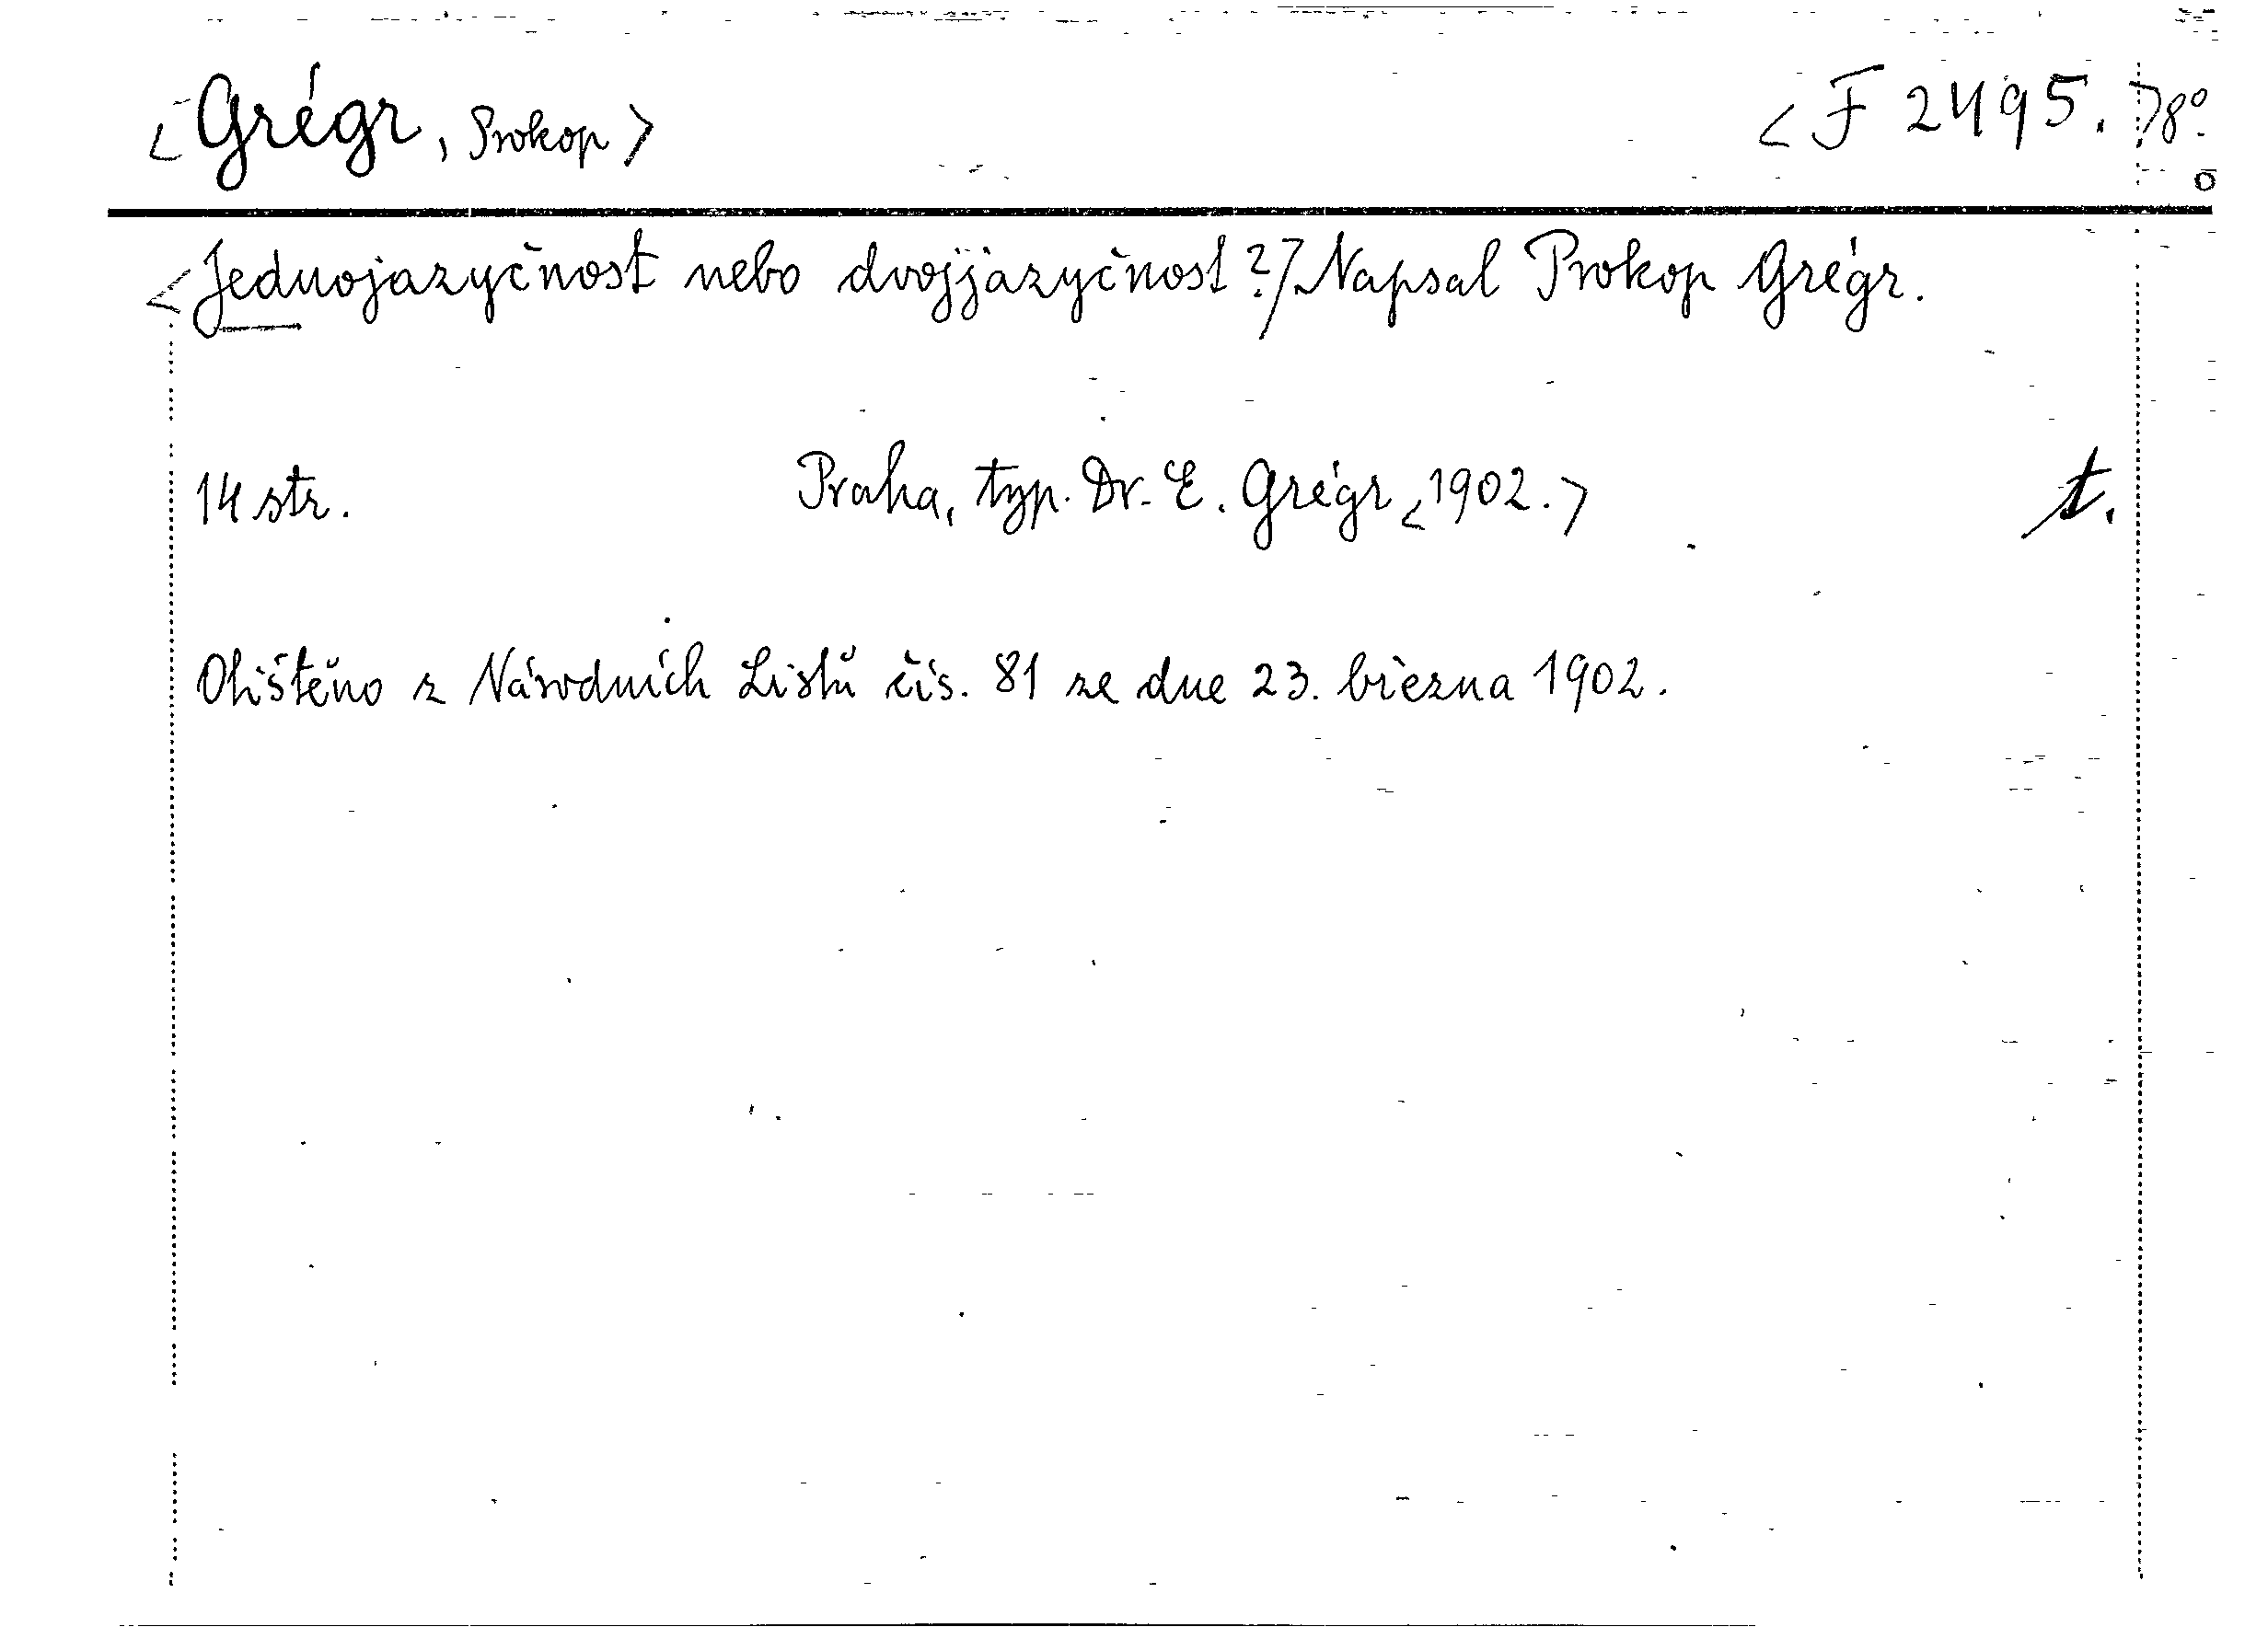 <Grégr, Prokop> <F 2495.>8°.
<Jednojazyčnost nebo dvojjazyčnost?> Napsal Prokop Grégr.
14 str. Praha, typ. Dr. E. Grégr <1902.> t.
Otištěno z Národních Listů čís. 81 ze dne 23. března 1902.